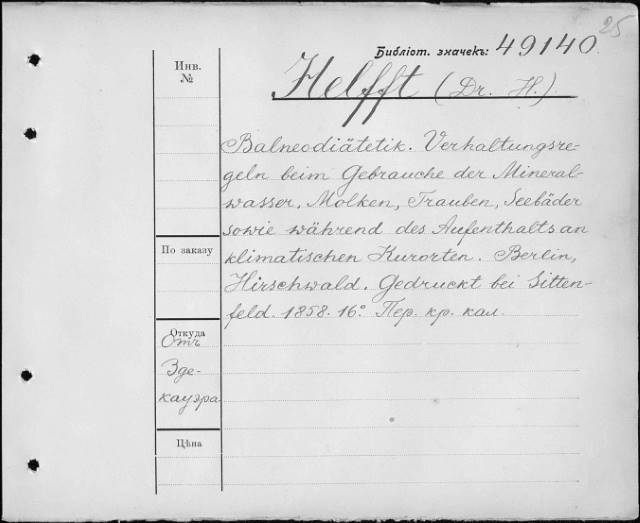 25
Библіот. значекъ: 49140.
Инв.
№
Helfft (Dr. H.)
Balneodiätetik. Verhaltungsre-
geln beim Gebrauche der Mineral-
wasser, Molken, Trauben, Seebäder
sowie während des Aufenthalts an
klimatischen Kurorten. Berlin,
Hirschwald. Gedruckt bei Sitten-
feld. 1858. 16° Пер. кр. кал.
По заказу
Откуда
Отъ
Зде-
кауэра
Цѣна